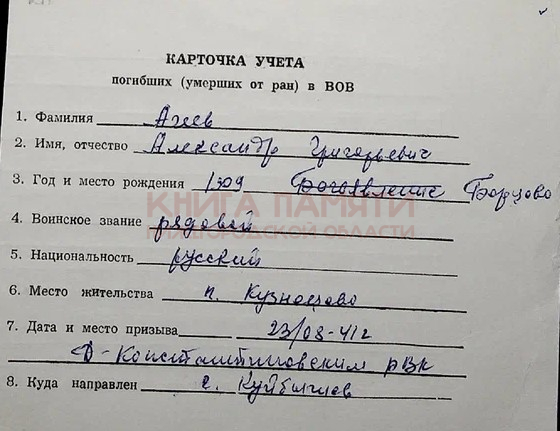 КАРТОЧКА УЧЕТА
погибших (умерших от ран) в ВОВ
1. Фамилия Агеев
2. Имя, отчество Александр Григорьевич
3. Год и место рождения 1909 Богоявление Борцово
КНИГА ПАМЯТИ
НИЖЕГОРОДСКОЙ ОБЛАСТИ
4. Воинское звание рядовой
5. Национальность русский
6. Место жительства п. Кузнецово
7. Дата и место призыва 23/08-41г
Д-Константиновским РВК
8. Куда направлен г. Куйбышев